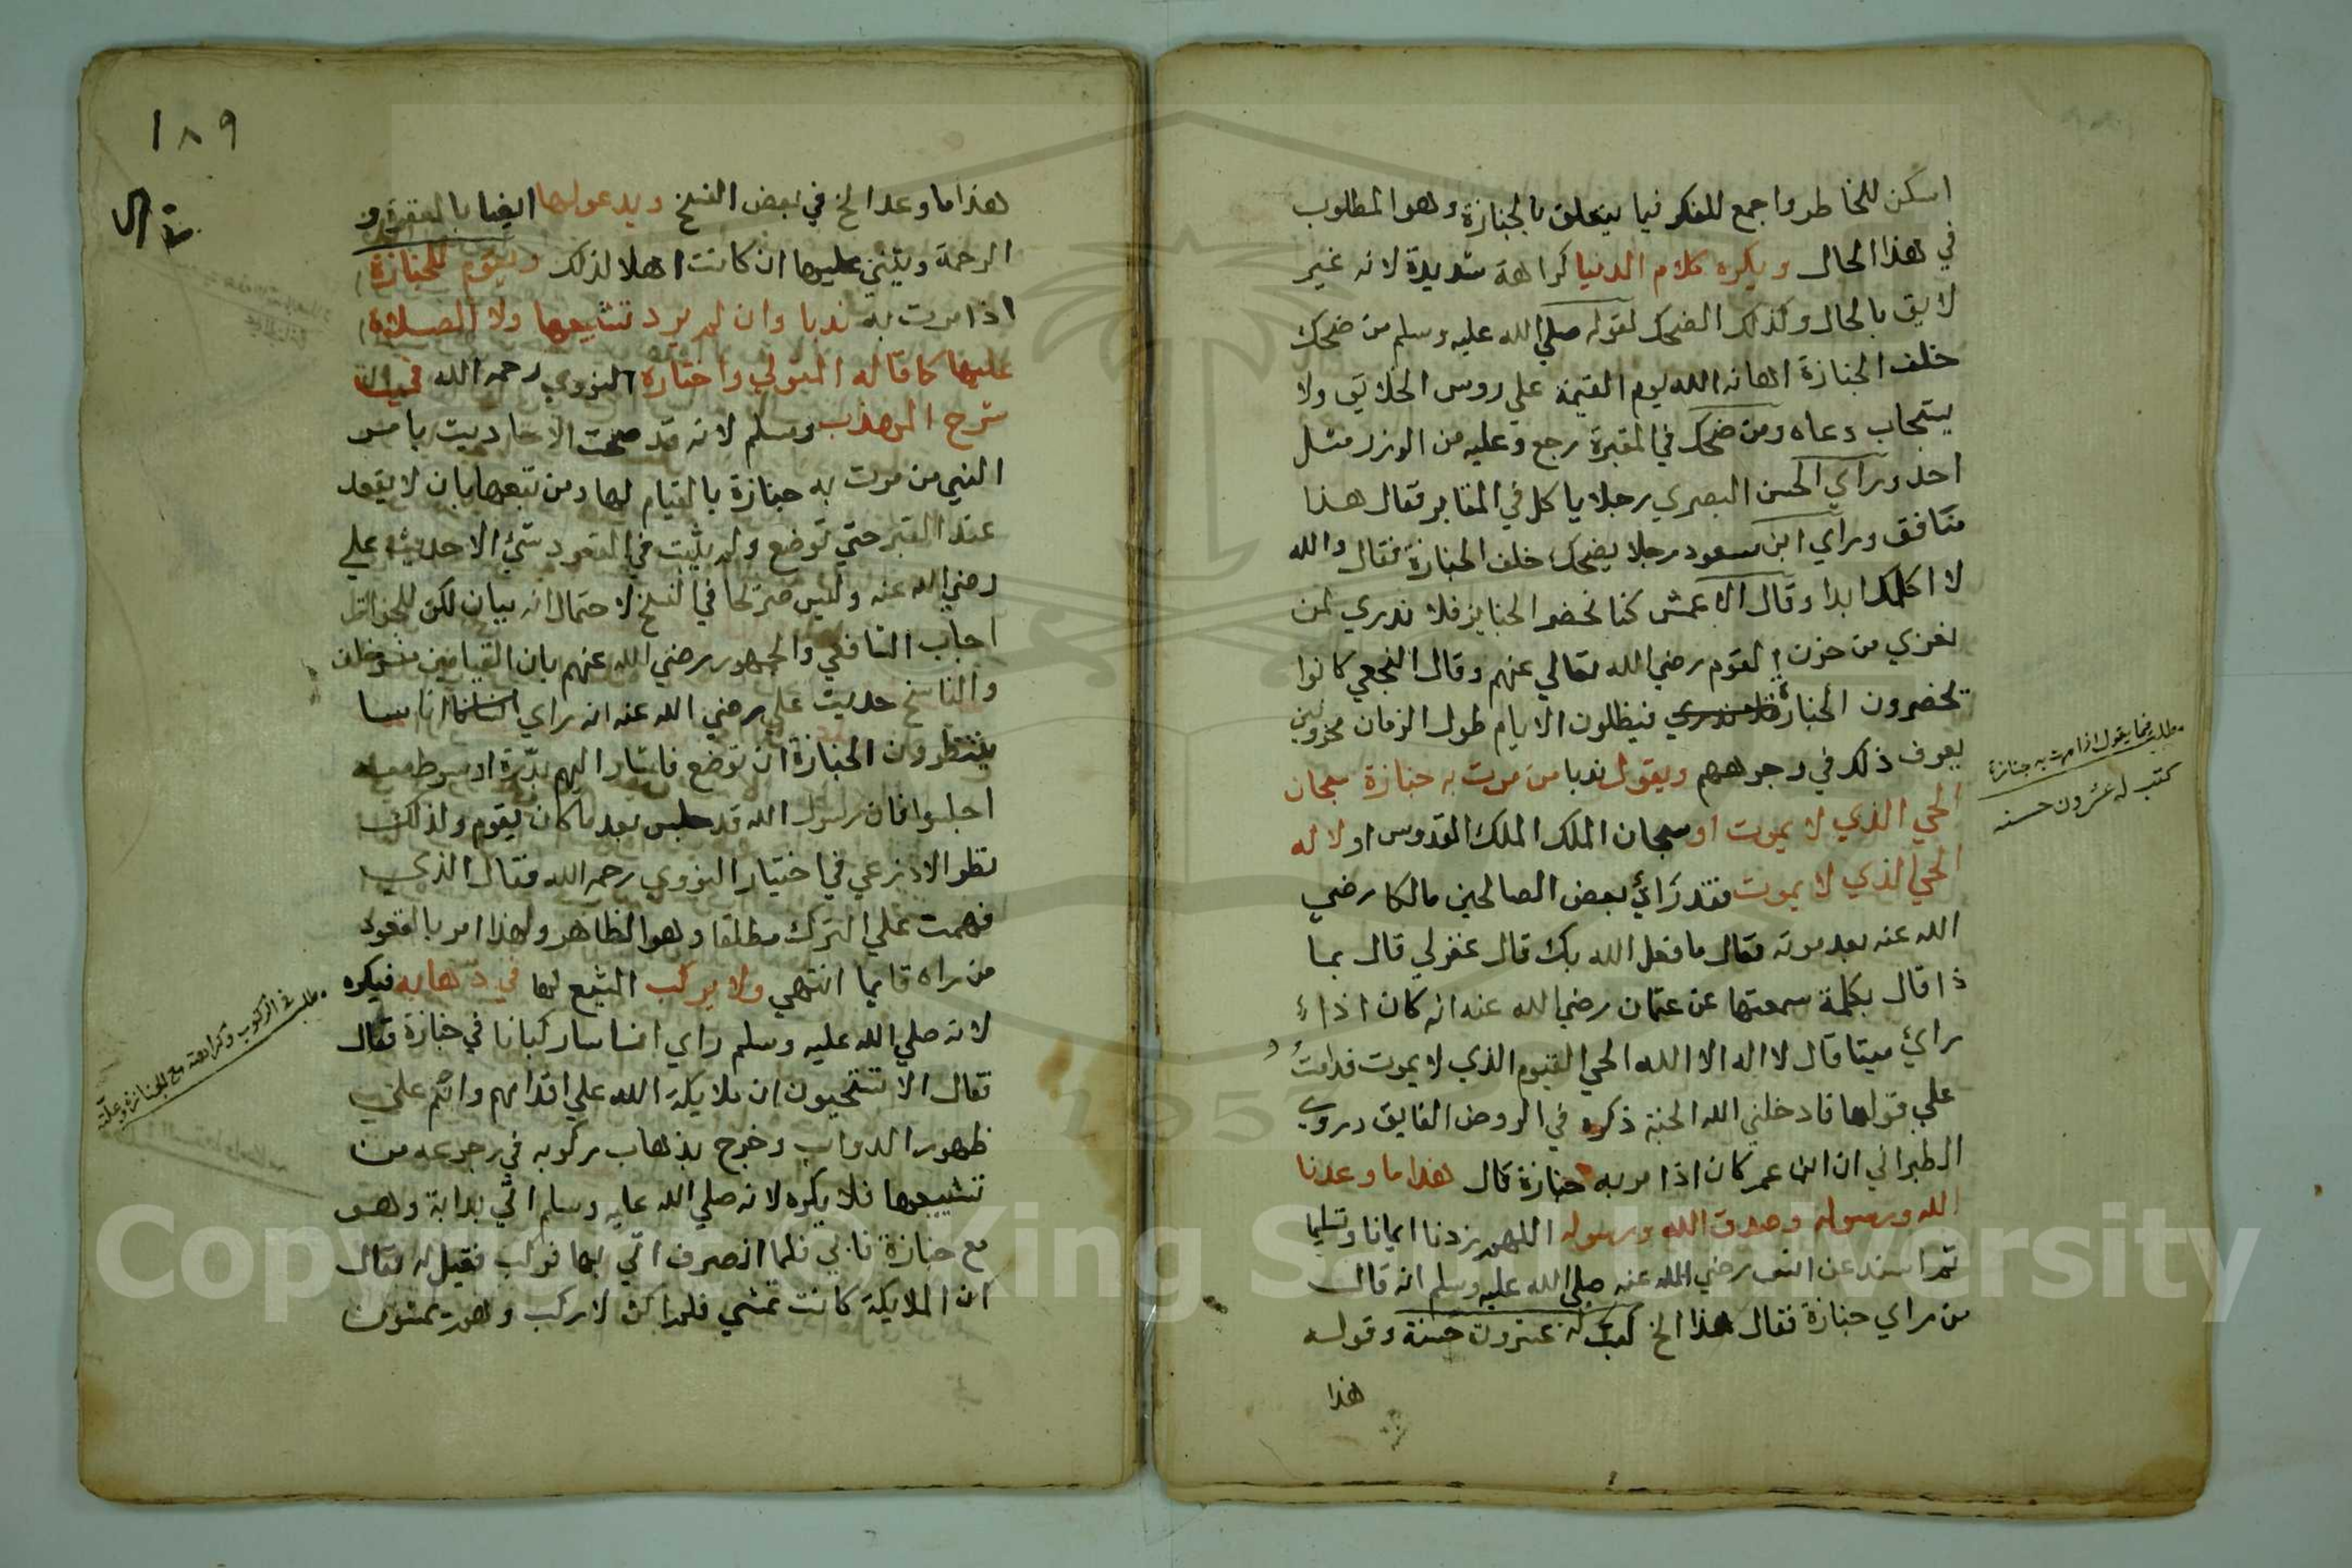 اسكن للخاطر واجمع للفكر فيما يتعلق بالجنازة وهو المطلوب
في هذا الحال ويكره كلام الدنيا كراهة شديدة لانه غير
لايق بالحال وكذلك الضحك لقوله صلي الله عليه وسلم من ضحك
خلف الجنازة اهانه الله يوم القيمة علي روس الخلايق ولا
يستجاب دعاه ومن ضحك في المقبرة رجع وعليه من الوزر مثل
احد وراي الحسن البصري رجلا ياكل في المقابر فقال هذا
منافق وراي ابن مسعود رجلا يضحك خلف الجنازة فقال والله
لا اكلمك ابدا وقال الاعمش كنا نحضر الجنايز فلا ندري لمن
نعزي من حزن القوم رضي الله تعالي عنهم وقال النخعي كانوا
يحضرون الجنازة فيظلون الايام طول الزمان محزونين
يعرف ذلك في وجوههم ويقول ندبا من مرت به جنازة سبحان
الحي الذي لا يموت او سبحان الملك الملك القدوس او لا اله
الحي الذي لا يموت فقد رائ بعض الصالحين مالكا رضي
الله عنه بعد موته فقال ما فعل الله بك قال غفر لي قال بما
ذا قال بكلمة سمعتها عن عثمان رضي الله عنه انه كان اذا
رائ ميتا قال لا اله الا الله الحي القيوم الذي لا يموت فدمت
علي قولها فادخلني الله الجنة ذكره في الروض الفايق وروي
الطبراني ان ابن عمر كان اذا مر به جنازة قال هذا ما وعدنا
الله ورسوله وصدق الله ورسوله اللهم زدنا ايمانا وتسليما
ثم اسند عن انس رضي الله عنه صلي الله عليه وسلم انه قال
من راي جنازة فقال هذا الخ كتب له عشرون حسنة وقوله
هذا
مطلب فيما يقول اذا مرت به جنازة
كتب له عشرون حسنه
١٨٩
هذا ما وعد الخ في بعض النسخ ويدعو لها ايضا بالمغفرة و
الرحمة ويثني عليها ان كانت اهلا لذلك ويقوم للجنازة
اذا مرت به ندبا وان لم يرد تشييعها ولا الصلاة
عليها كما قاله المتولي واختاره النووي رحمه الله في
شرح المهذب ومسلم لانه قد صحت الاحاديث بامر
النبي من مرت به جنازة بالقيام لها ومن تبعها بان لا يقعد
عند القبر حتي توضع ولم يثبت في القعود شئ الا حديث علي
رضي الله عنه وليس صريحا في النسخ لاحتمال انه بيان لكن للجواز
اجاب الشافعي والجمهور رضي الله عنهم بان القيامين
والناسخ حديث علي رضي الله عنه انه راي اناسا
ينتظرون الجنازة ان توضع فاشار اليهم بدّرة او سوط معه
اجلسوا فان رسول الله قد جلس بعد ما كان يقوم ولذلك
نظر الاذرعي في اختيار النووي رحمه الله فقال الذي
فهمت علي الترك مطلقا وهو الظاهر ولهذا امر بالقعود
من راه قايما انتهي ولا يركب المشيع لها في ذهابه فيكره
لانه صلي الله عليه وسلم راي اناسا ركبانا في جنازة فقال
فقال الا تستحيون ان ملايكة الله علي اقدامهم وانتم علي
ظهور الدواب وخرج بذهاب ركوبه في رجوعه من
تشييعها فلا يكره لانه صلي الله عليه وسلم اتي بدابة وهو
مع جنازة فابي فلما انصرف اتي بها فركب فقيل له فقال
ان الملايكة كانت تمشي فلم اكن لاركب وهم يمشون
مطلب في الركوب وكراهته مع الجنازة وعلته
Copyright © King Saud University
1957